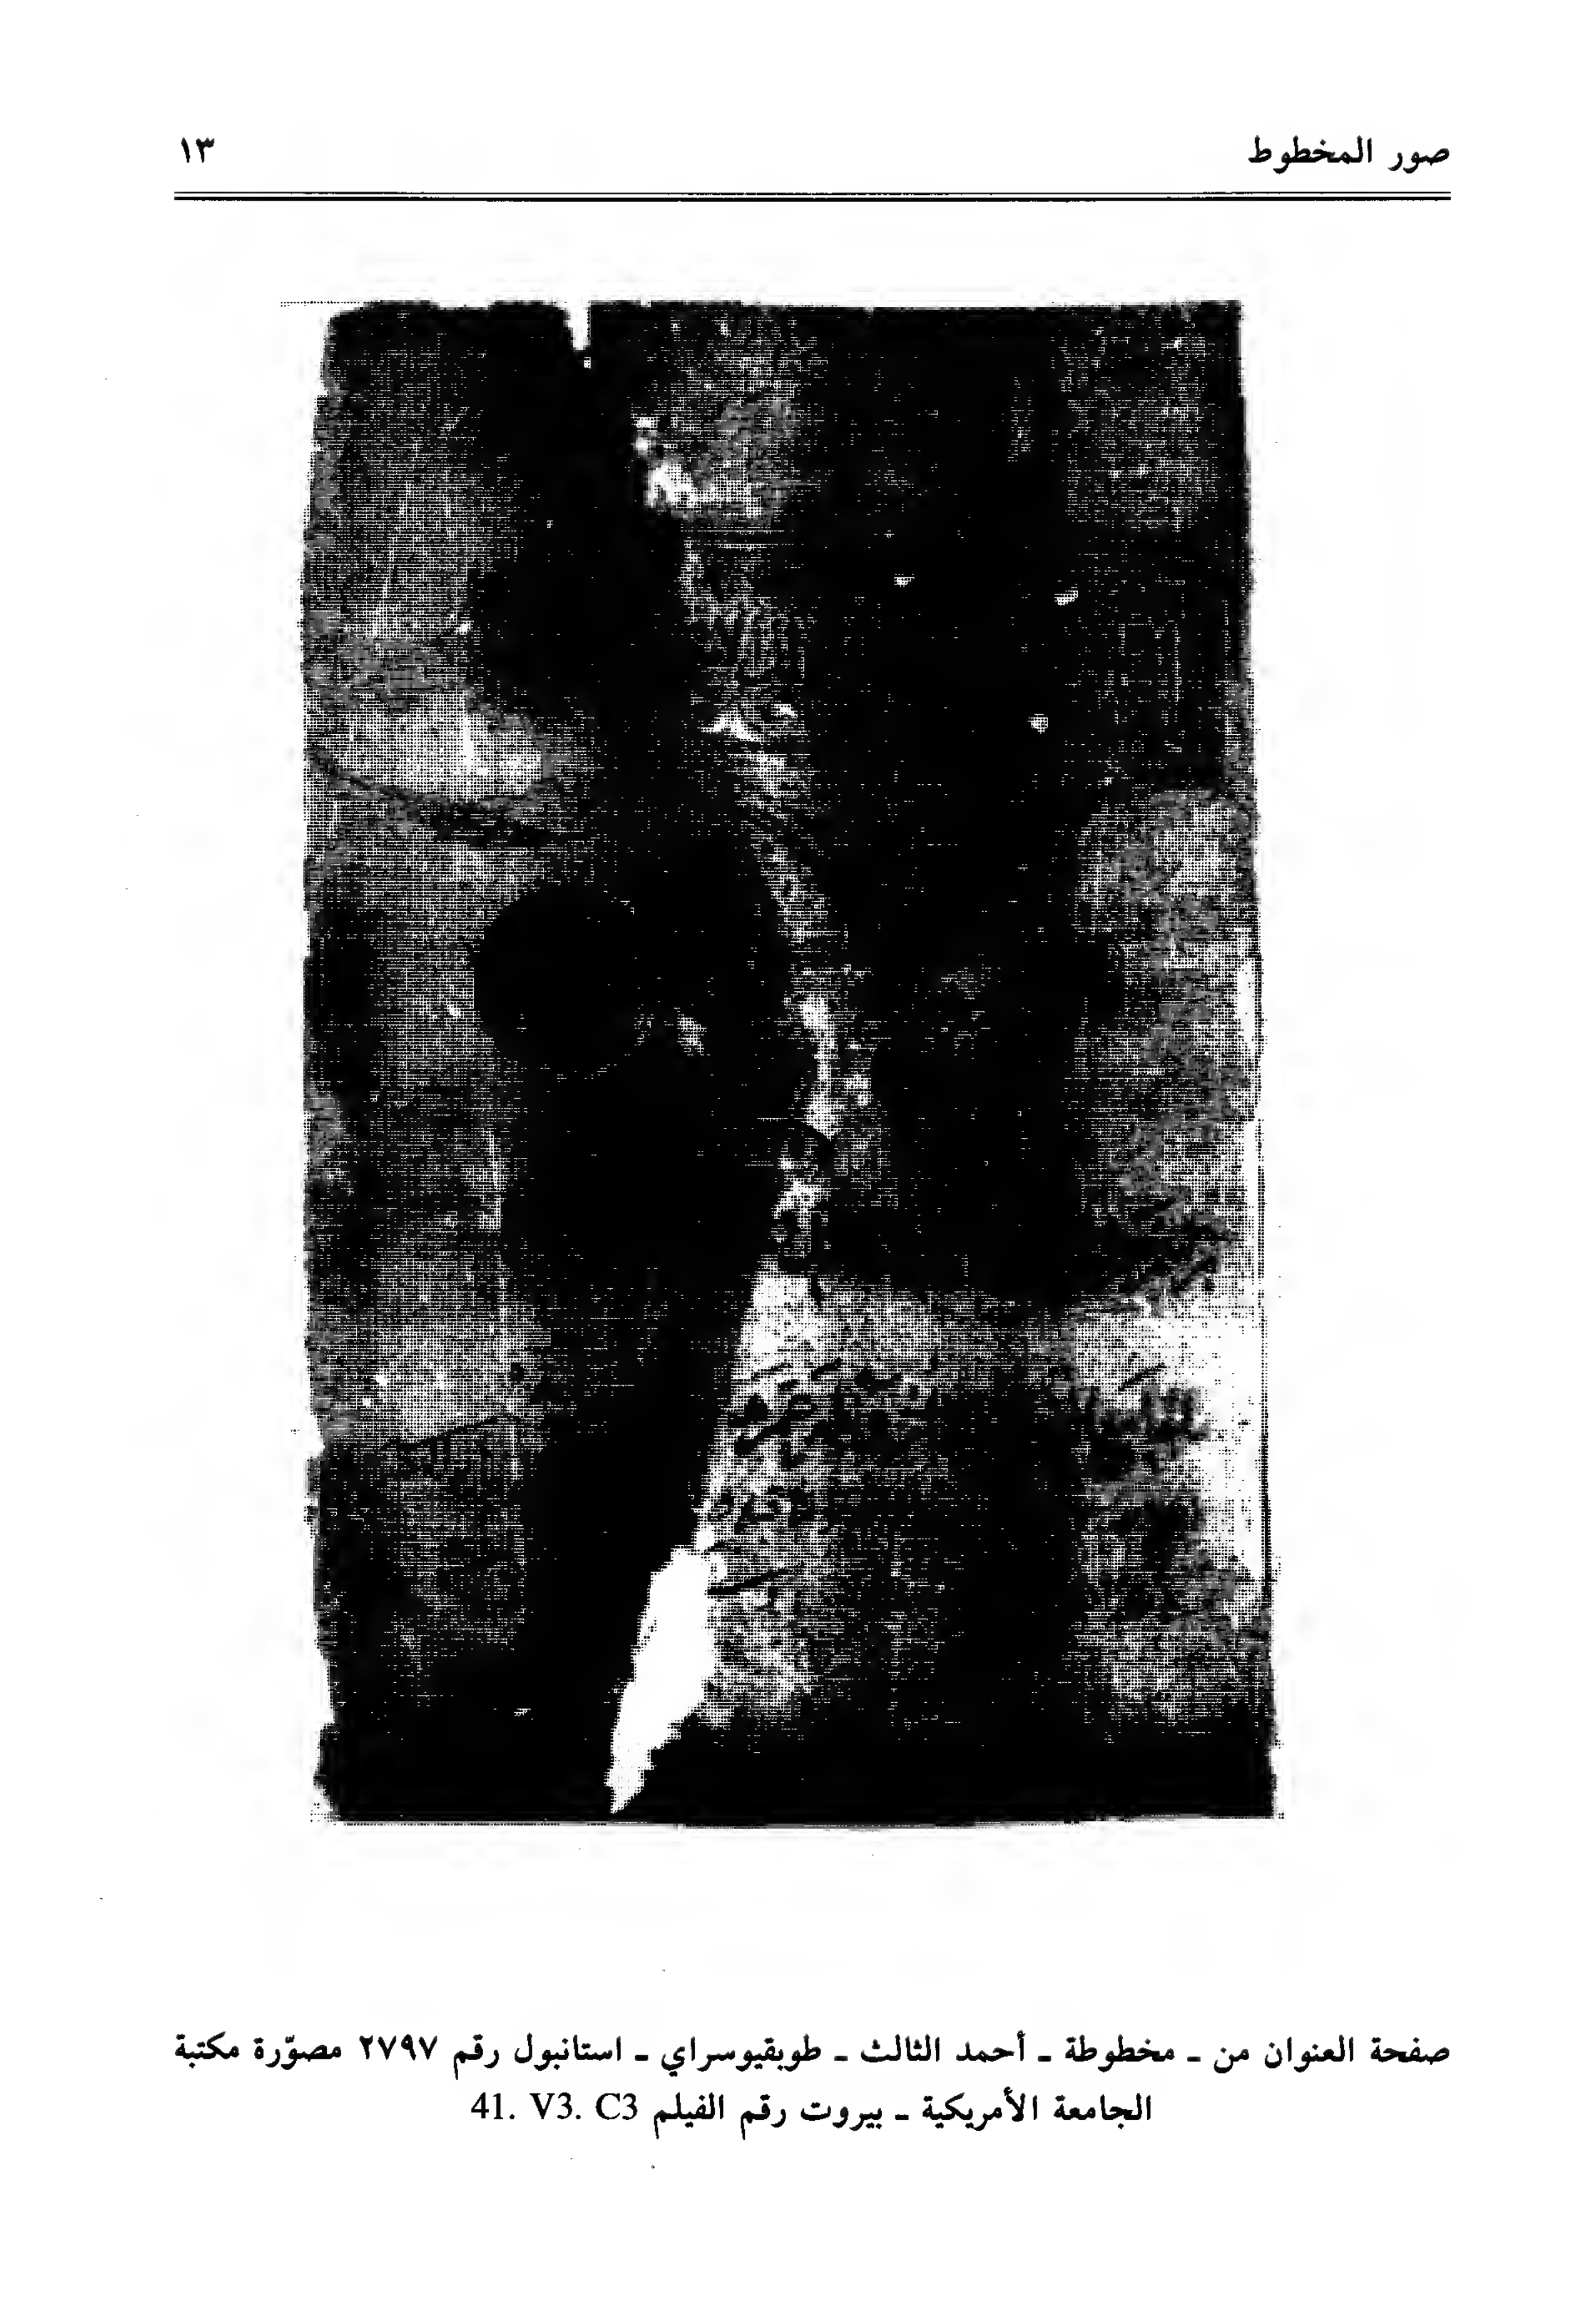 صور المخطوط
١٣
صفحة العنوان من - مخطوطة - أحمد الثالث - طوبقيوسراي - استانبول رقم ٢٧٩٧ مصوّرة مكتبة
الجامعة الأمريكية - بيروت رقم الفيلم 41. V3. C3